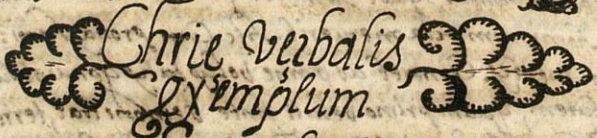 Chrie verbalis
exemplum